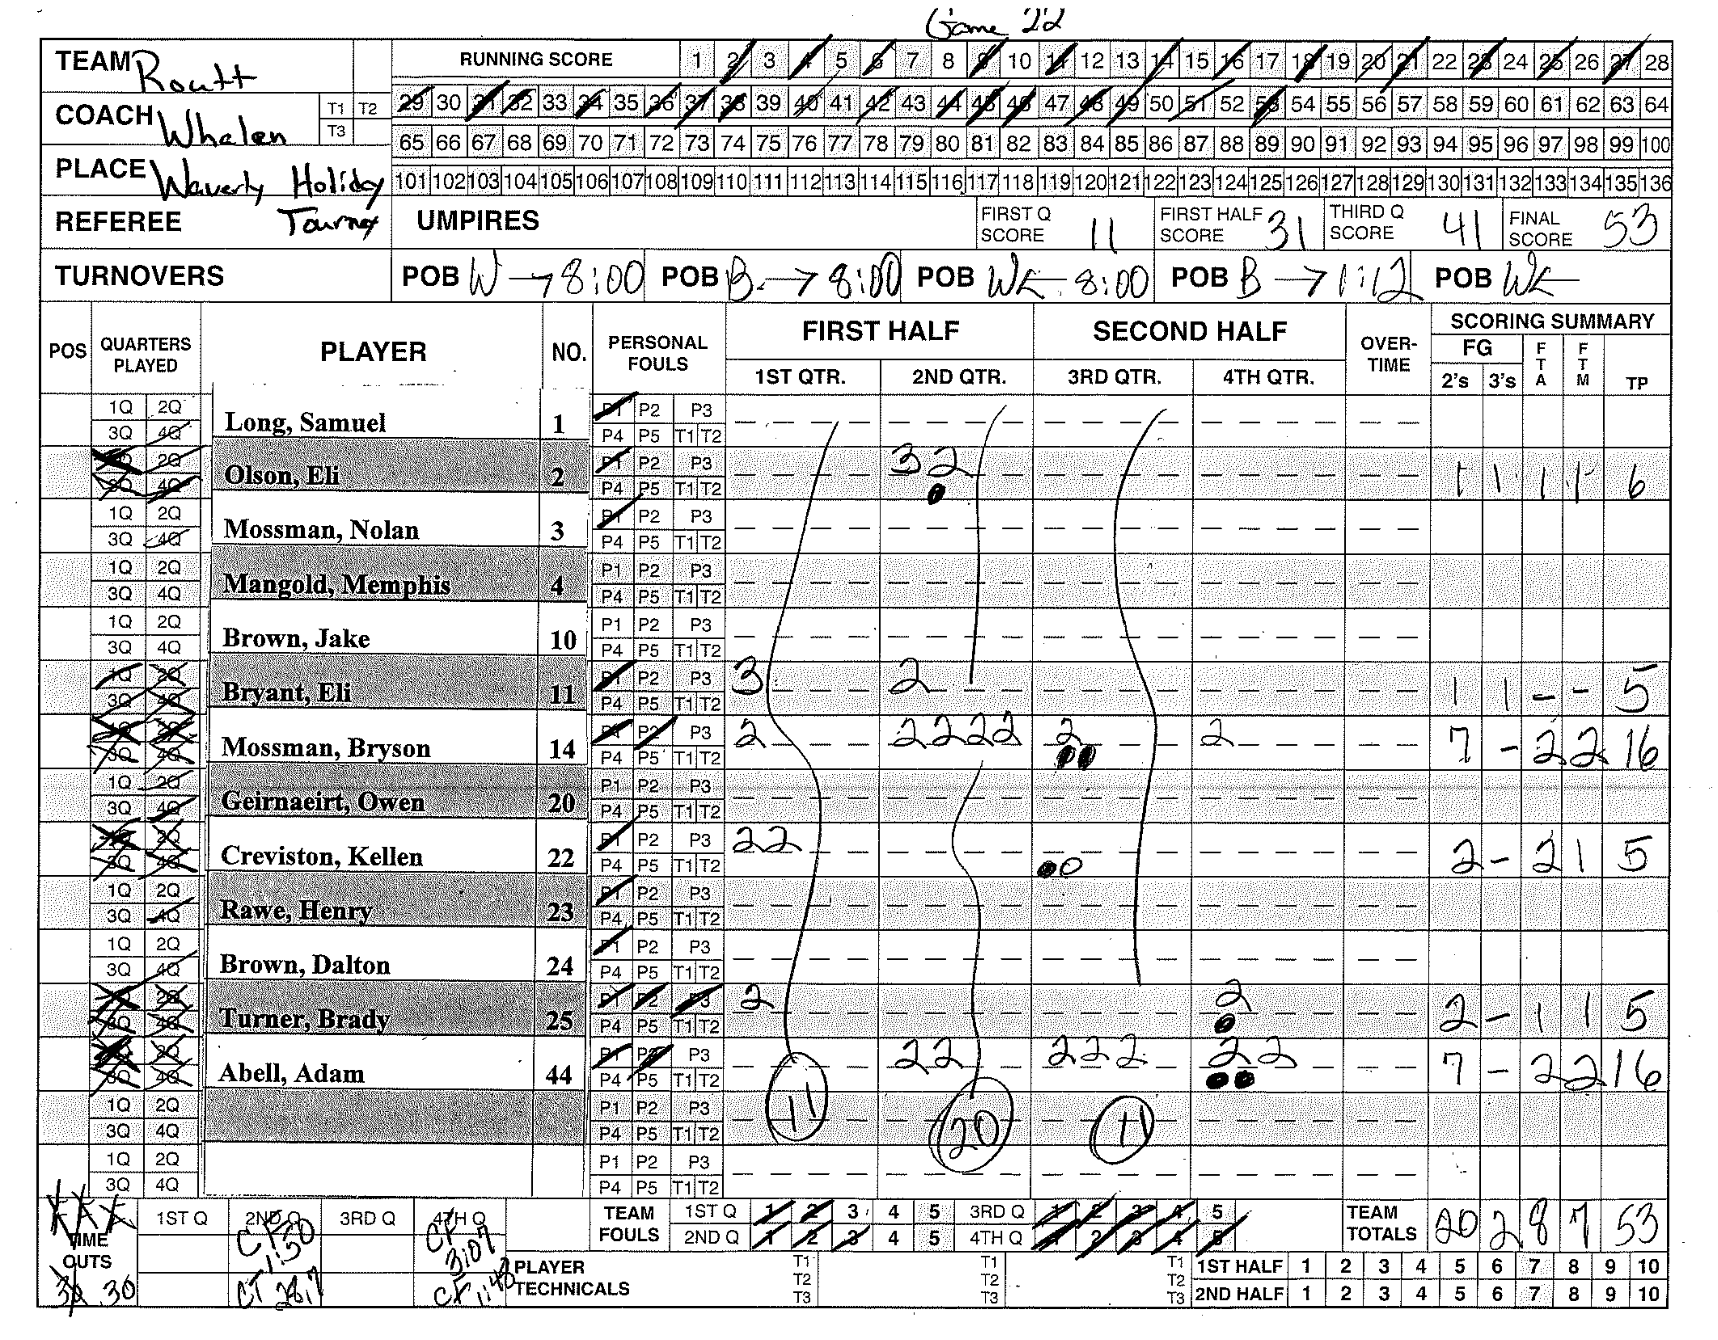 Game 22
TEAM Routt RUNNING SCORE 1 2 3 4 5 6 7 8 9 10 11 12 13 14 15 16 17 18 19 20 21 22 23 24 25 26 27 28
COACH Whalen T1 T2 T3 29 30 31 32 33 34 35 36 37 38 39 40 41 42 43 44 45 46 47 48 49 50 51 52 53 54 55 56 57 58 59 60 61 62 63 64
65 66 67 68 69 70 71 72 73 74 75 76 77 78 79 80 81 82 83 84 85 86 87 88 89 90 91 92 93 94 95 96 97 98 99 100
PLACE Waverly Holiday Tourney 101 102 103 104 105 106 107 108 109 110 111 112 113 114 115 116 117 118 119 120 121 122 123 124 125 126 127 128 129 130 131 132 133 134 135 136
REFEREE UMPIRES FIRST Q SCORE 11 FIRST HALF SCORE 31 THIRD Q SCORE 41 FINAL SCORE 53
TURNOVERS POB W → 8:00 POB B → 8:00 POB WL 8:00 POB B → 1:12 POB WL
POS QUARTERS PLAYED PLAYER NO. PERSONAL FOULS FIRST HALF SECOND HALF OVER-TIME SCORING SUMMARY
1ST QTR. 2ND QTR. 3RD QTR. 4TH QTR. FG 2's 3's FTA FTM TP
1Q 2Q Long, Samuel 1 P1 P2 P3
3Q 4Q P4 P5 T1 T2
1Q 2Q Olson, Eli 2 P1 P2 P3 3 2 1 1 1 1 6
3Q 4Q P4 P5 T1 T2
1Q 2Q Mossman, Nolan 3 P1 P2 P3
3Q 4Q P4 P5 T1 T2
1Q 2Q Mangold, Memphis 4 P1 P2 P3
3Q 4Q P4 P5 T1 T2
1Q 2Q Brown, Jake 10 P1 P2 P3
3Q 4Q P4 P5 T1 T2
1Q 2Q Bryant, Eli 11 P1 P2 P3 3 2 1 1 - - 5
3Q 4Q P4 P5 T1 T2
1Q 2Q Mossman, Bryson 14 P1 P2 P3 2 2 2 2 2 2 2 7 - 2 2 16
3Q 4Q P4 P5 T1 T2
1Q 2Q Geirnaeirt, Owen 20 P1 P2 P3
3Q 4Q P4 P5 T1 T2
1Q 2Q Creviston, Kellen 22 P1 P2 P3 2 2 2 - 2 1 5
3Q 4Q P4 P5 T1 T2
1Q 2Q Rawe, Henry 23 P1 P2 P3
3Q 4Q P4 P5 T1 T2
1Q 2Q Brown, Dalton 24 P1 P2 P3
3Q 4Q P4 P5 T1 T2
1Q 2Q Turner, Brady 25 P1 P2 P3 2 2 2 - 1 1 5
3Q 4Q P4 P5 T1 T2
1Q 2Q Abell, Adam 44 P1 P2 P3 2 2 2 2 2 2 2 7 - 2 2 16
3Q 4Q P4 P5 T1 T2
1Q 2Q P1 P2 P3 11 20 11
3Q 4Q P4 P5 T1 T2
1Q 2Q P1 P2 P3
3Q 4Q P4 P5 T1 T2
TIME OUTS 1ST Q 2ND Q 3RD Q 4TH Q TEAM FOULS 1ST Q 1 2 3 4 5 3RD Q 1 2 3 4 5 TEAM TOTALS 20 2 8 7 53
CF 1:50 CF 3:07 2ND Q 1 2 3 4 5 4TH Q 1 2 3 4 5
30 .30 CT 28.7 CF 1:48 PLAYER TECHNICALS T1 T2 T3 T1 T2 T3 T1 T2 T3 1ST HALF 1 2 3 4 5 6 7 8 9 10
2ND HALF 1 2 3 4 5 6 7 8 9 10